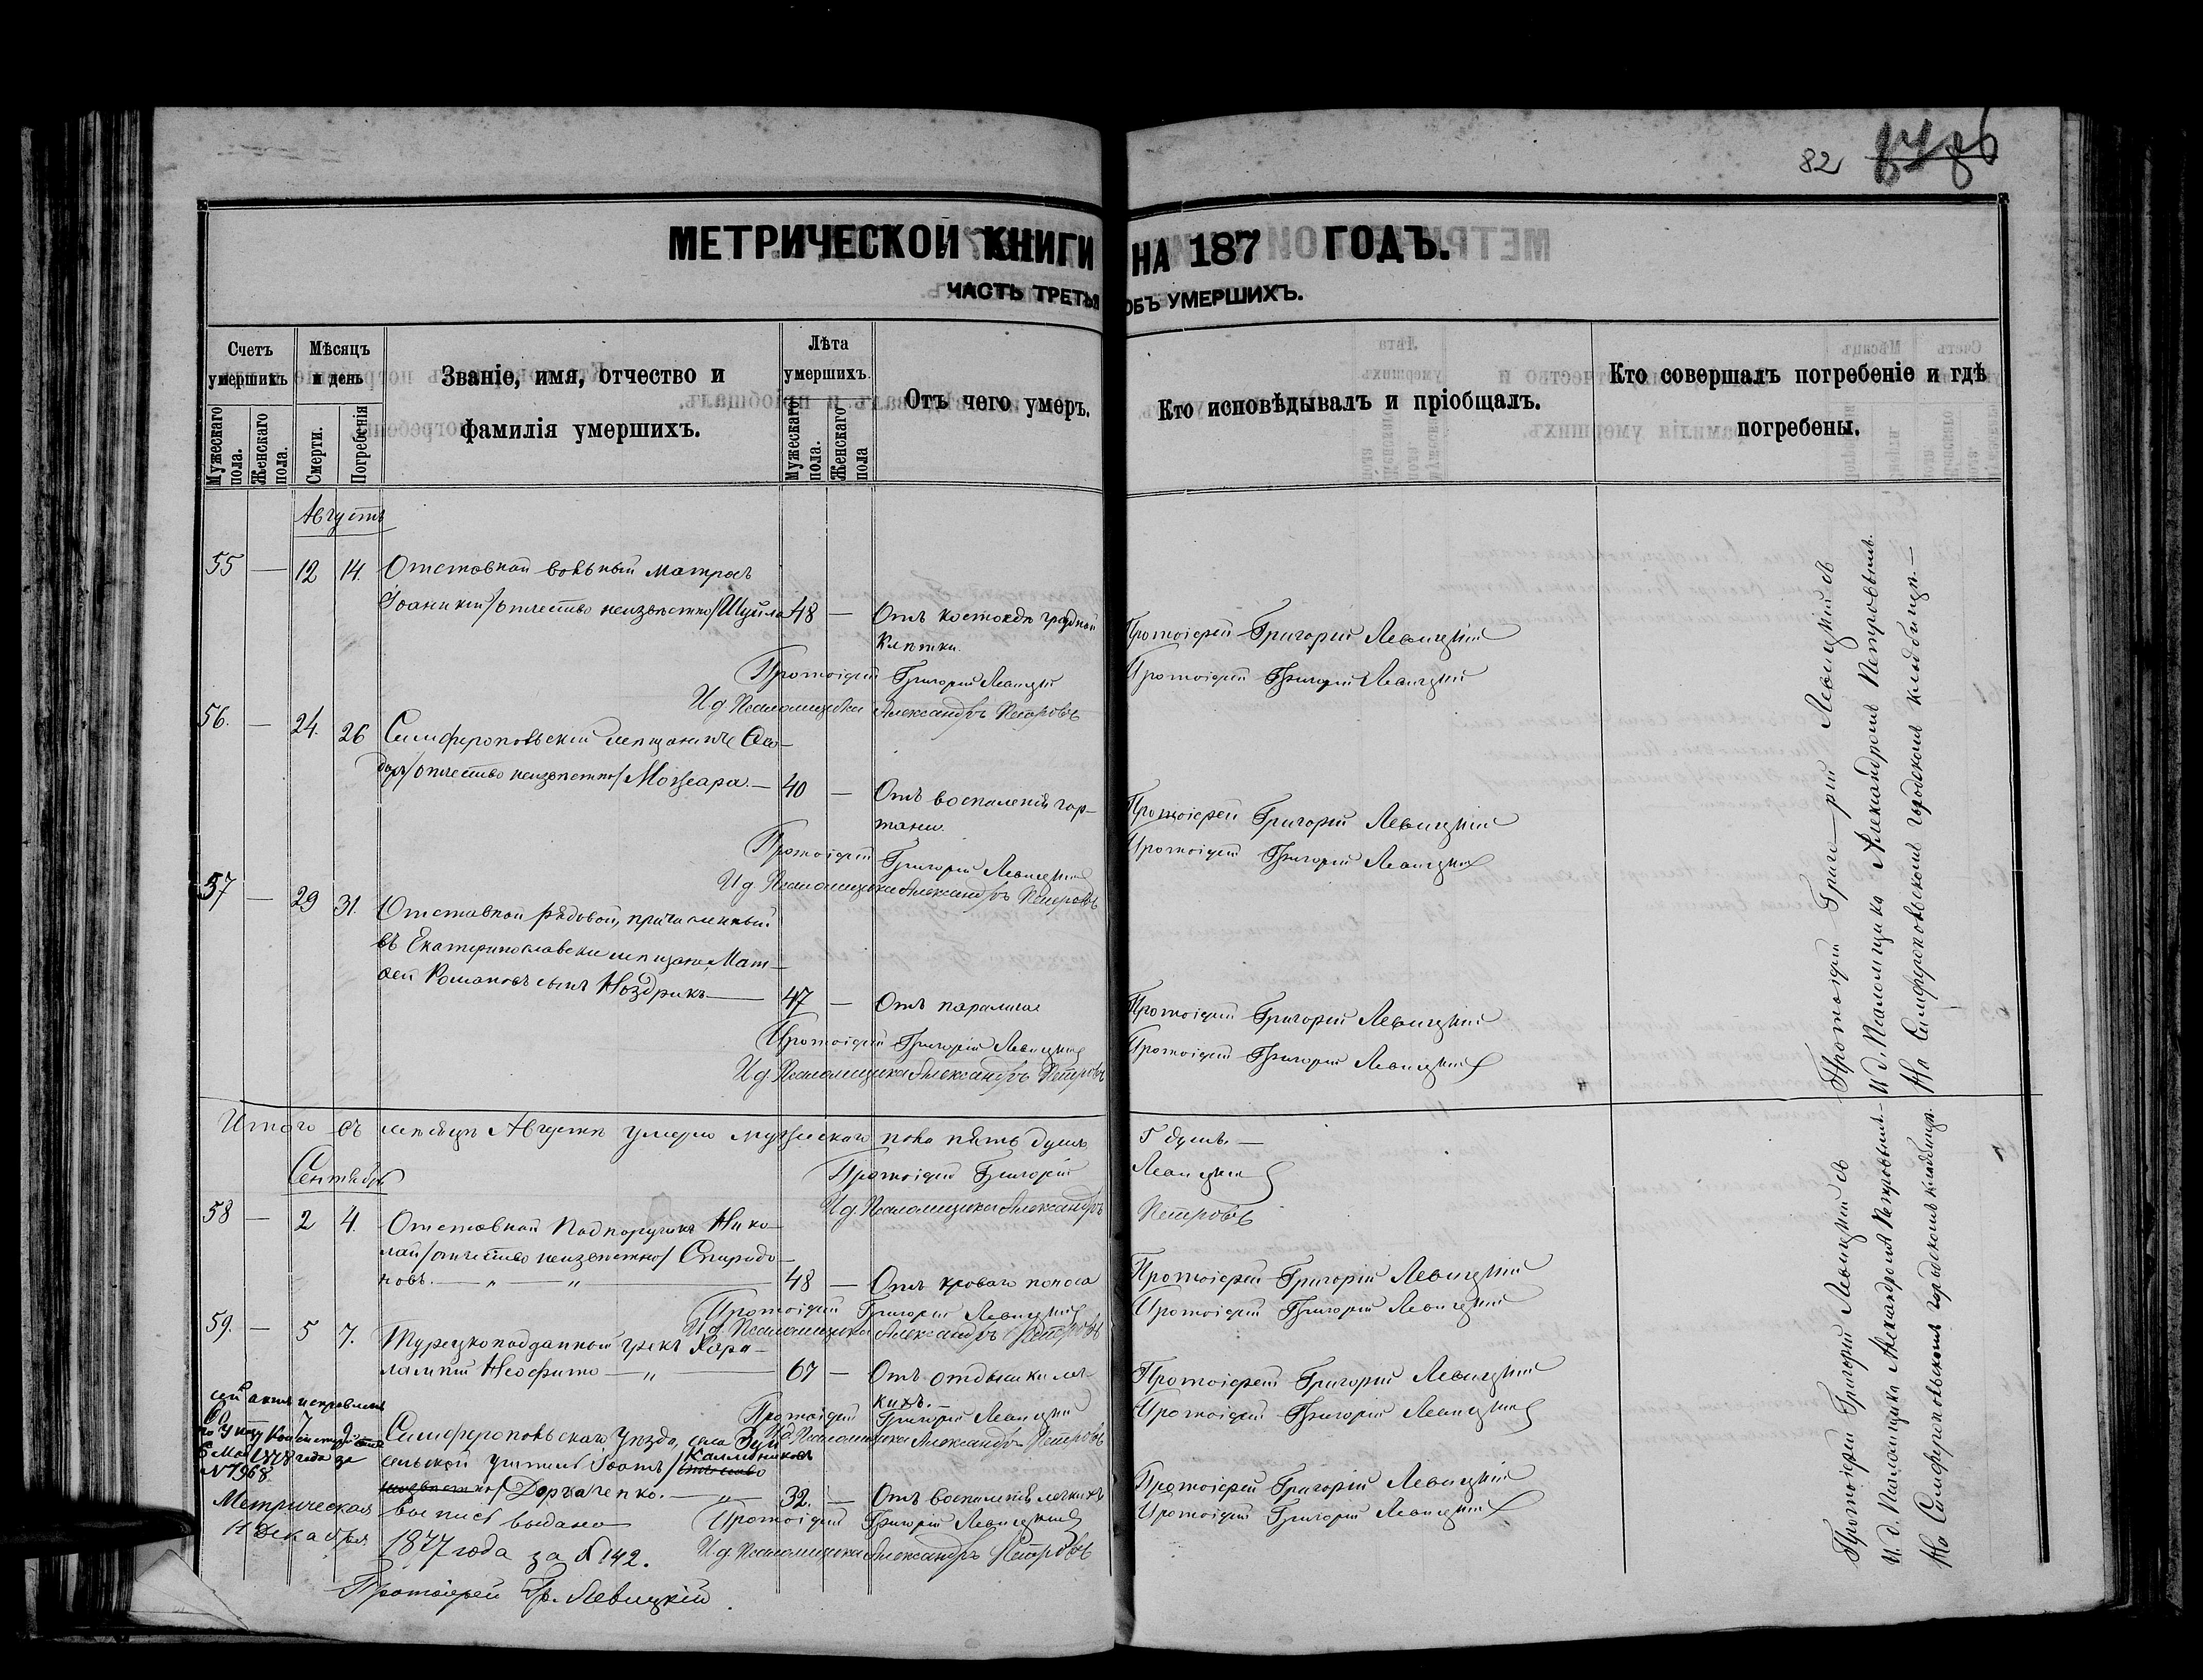 82
МЕТРИЧЕСКОЙ КНИГИ НА 187 ГОДЪ.
ЧАСТЬ ТРЕТЬЯ ОБЪ УМЕРШИХЪ.
Счетъ умершихъ
Мужескаго пола.
Женскаго пола.
Мѣсяцъ и день
Смерти.
Погребенія
Званіе, имя, отчество и
фамилія умершихъ.
Лѣта умершихъ.
Мужескаго пола.
Женскаго пола
Отъ чего умеръ.
Кто исповѣдывалъ и пріобщалъ.
Кто совершалъ погребеніе и гдѣ
погребены.
Августъ
55 — 12 14. Отставной вольный матросъ
Іоаникій /отчество неизвѣстно/ Шуйла 48 — Отъ костоеды грудной
клѣтки.
Протоіерей Григорій Левицкій
Протоіерей Григорій Левицкій
Протоіерей Григорій Левицкій
И д. Псаломщика Александръ Петровъ
56. — 24. 26 Симферопольскій мѣщанинъ
/отчество неизвѣстно/ 40 — Отъ воспаленія гор-
тани.
Протоіерей Григорій Левицкій
Протоіерей Григорій Левицкій
Протоіерей Григорій Левицкій
И д. Псаломщика Александръ Петровъ
57 — 29 31. Отставной рядовой, причисленный
въ Екатеринославскіе мѣщане, Мат-
ѳей Романовъ сынъ Ноздрикъ — 47 — Отъ паралича
Протоіерей Григорій Левицкій
Протоіерей Григорій Левицкій
Протоіерей Григорій Левицкій
И д. Псаломщика Александръ Петровъ
Протоіерей Григорій Левицкій съ
И. д. Псаломщика Александромъ Петровымъ.
На Симферопольскомъ городскомъ кладбищѣ. —
Итого въ мѣсяцѣ Августѣ умерло мужескаго пола пять душъ 5 душъ. —
Протоіерей Григорій Левицкій
И д. Псаломщика Александръ Петровъ
Сентябрь
58 — 2 4. Отставной Подпоручикъ Нико-
лай /отчество неизвѣстно/ Спиридо-
новъ. — „ — „ — 48 — Отъ кроваго поноса
Протоіерей Григорій Левицкій
Протоіерей Григорій Левицкій
Протоіерей Григорій Левицкій
И д. Псаломщика Александръ Петровъ
59. — 5 7. Турецкоподданный грекъ Хара-
лампій Неофито — „ — 67 — Отъ отдышки лег-
кихъ. —
Протоіерей Григорій Левицкій
Протоіерей Григорій Левицкій
Протоіерей Григорій Левицкій
И д. Псаломщика Александръ Петровъ
Сей актъ исправленъ
по Указу Консисторіи отъ
5 Мая 1878 года за
№ 1968.
7 9. Симферопольскаго Уѣзда, села Зуи
сельскій учитель Іоаннъ / Каллиниковъ
отчество
неизвѣстно / — „ — 32. — Отъ воспаленія легкихъ
Протоіерей Григорій Левицкій
Протоіерей Григорій Левицкій
Протоіерей Григорій Левицкій
И д. Псаломщика Александръ Петровъ
Метрическая выпись выдана
11 Декабря 1877 года за № 142.
Протоіерей Гр. Левицкій
Протоіерей Григорій Левицкій съ
И. д. Псаломщика Александромъ Петровымъ. —
На Симферопольскомъ городскомъ кладбищѣ.